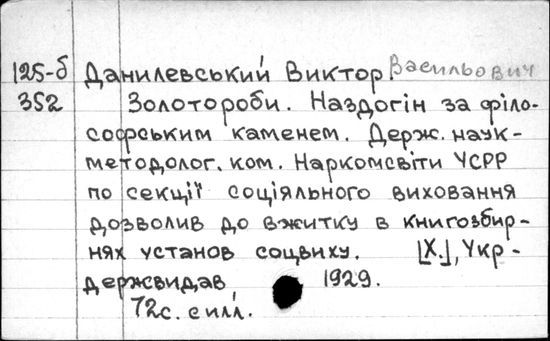 125-б Данилевський Виктор Васильович
352 Золотороби. Наздогін за філо-
софським каменем. Держ. наук-
методолог. ком. Наркомсвіти УСРР
по секції соціяльного виховання
дозволив до вжитку в книгозбир-
нях установ соцвиху. [Х.], Укр-
держвидав, 1929.
72с. с илл.